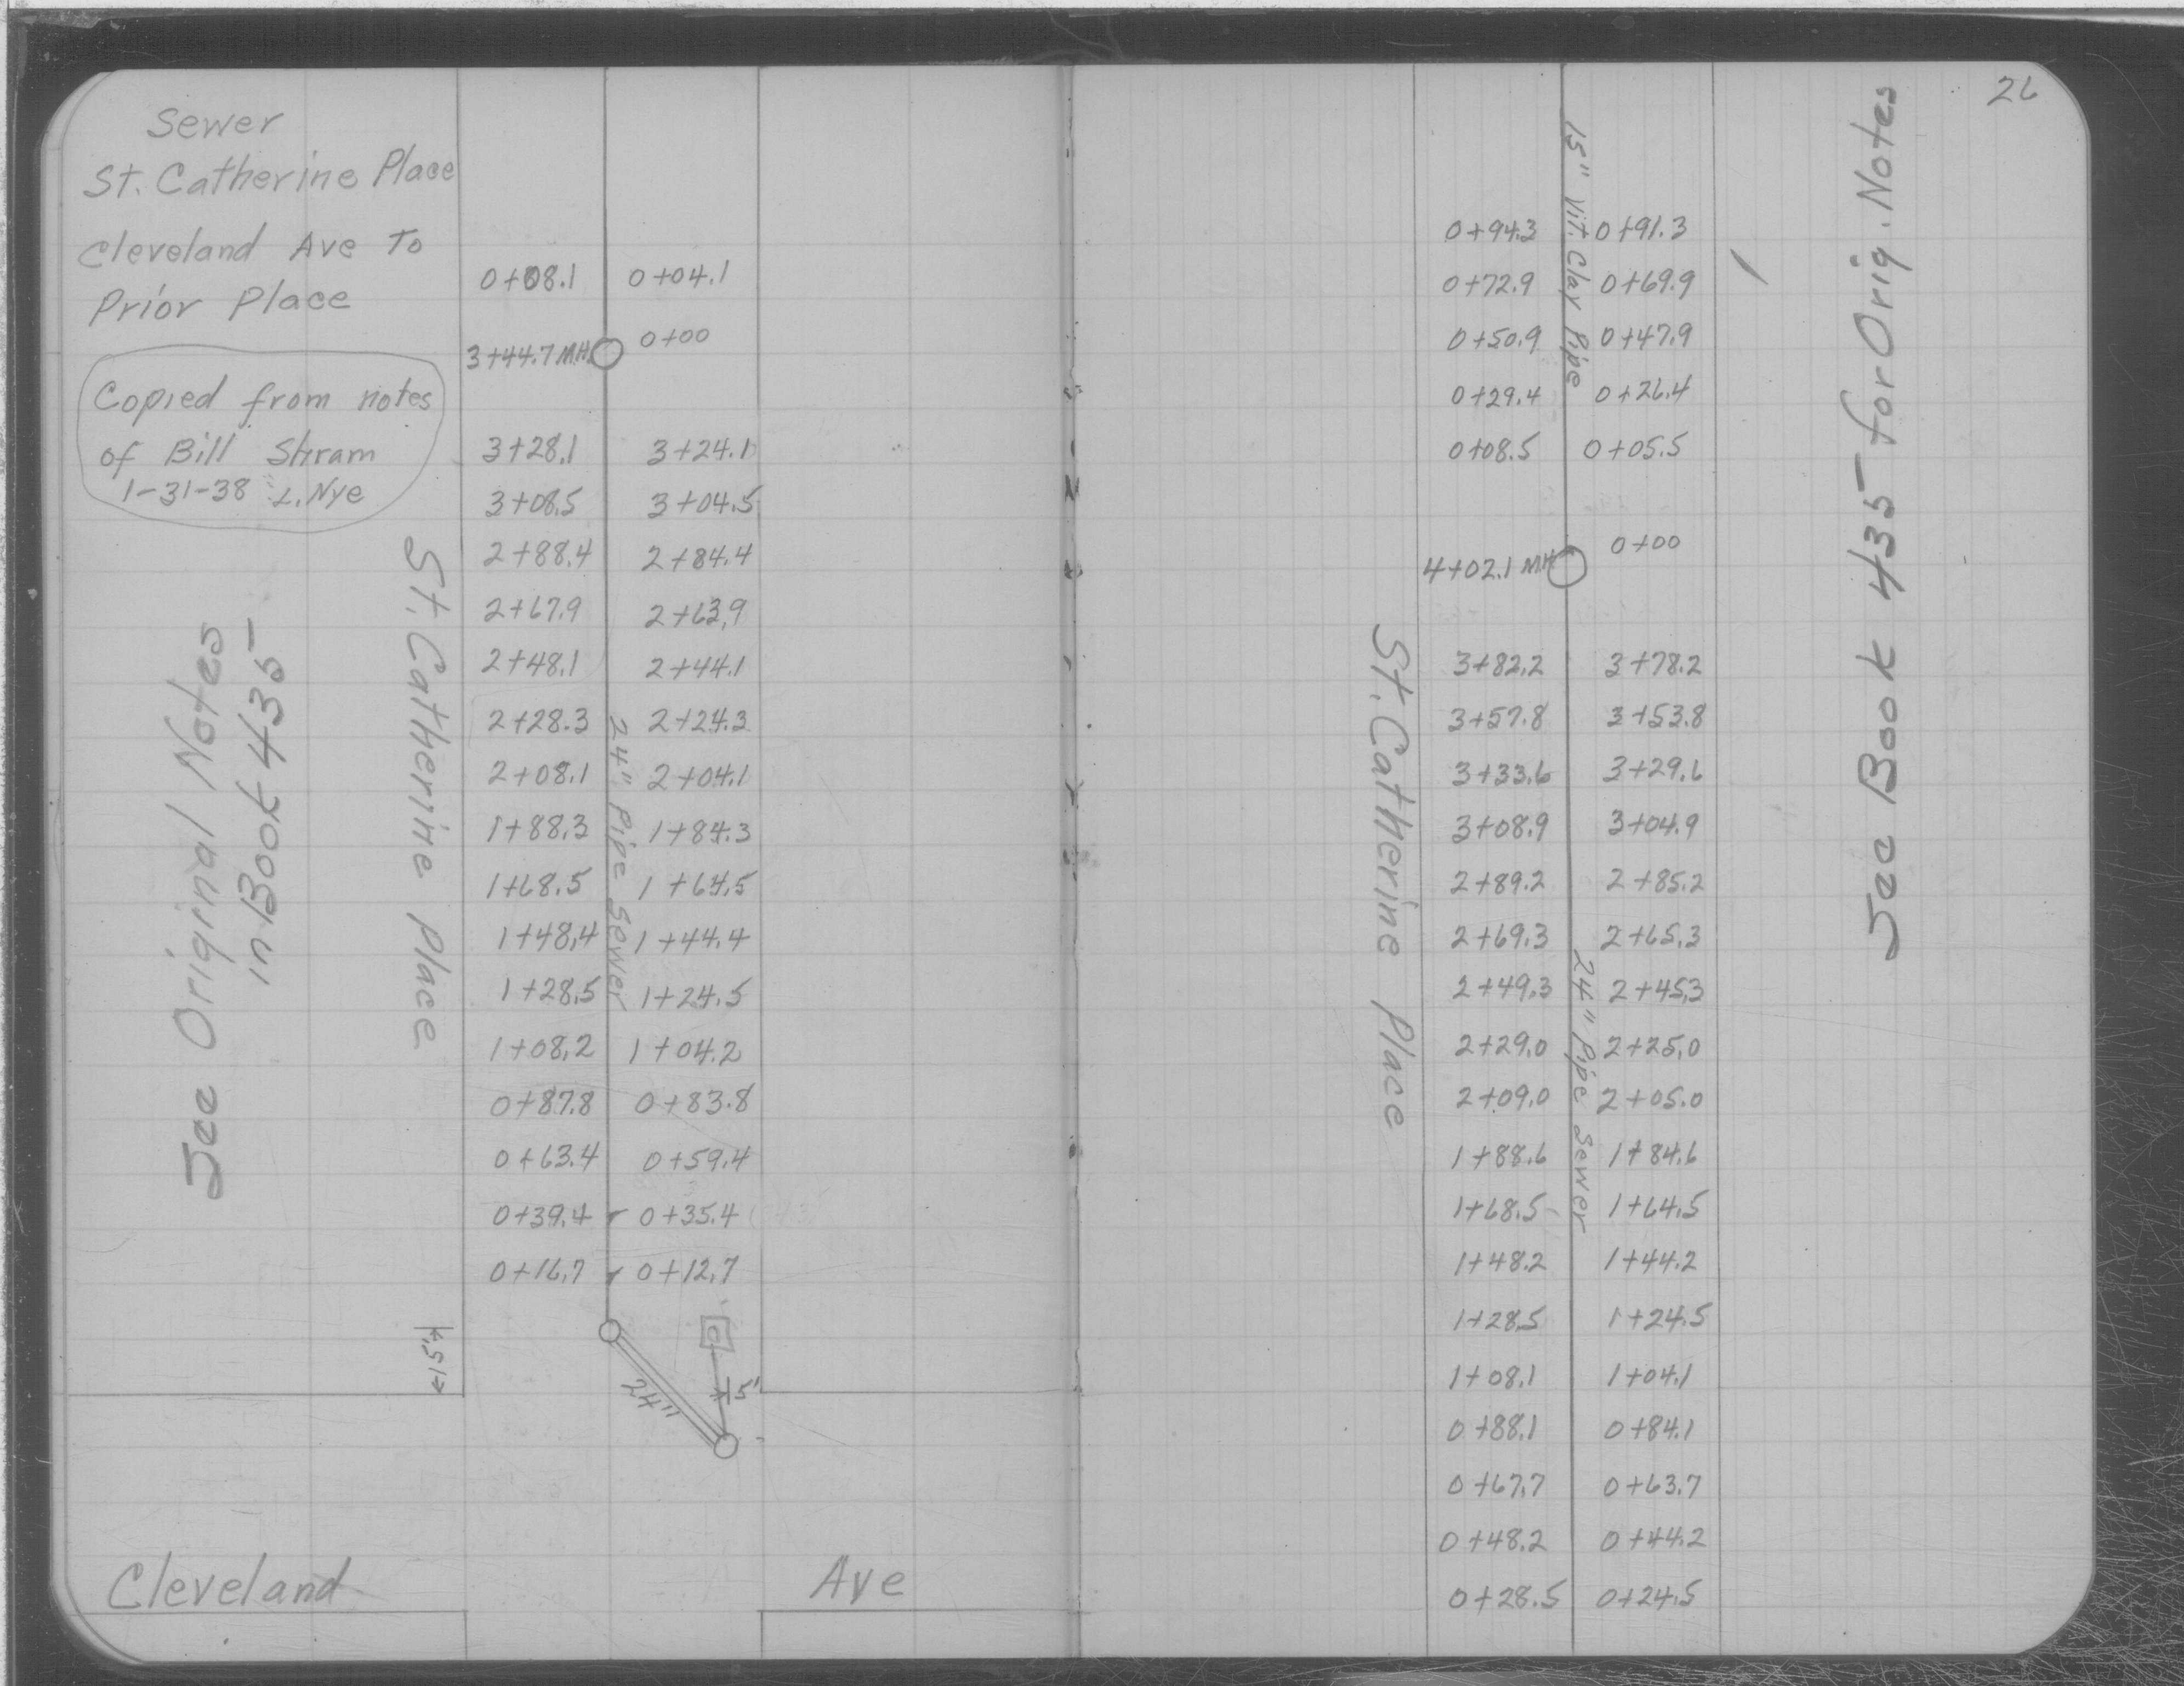 Sewer
St. Catherine Place
Cleveland Ave To
Prior Place
Copied from notes
of Bill Shram
1-31-38 L. Nye
See Original Notes
in Book 435
St. Catherine Place
0+08.1 0+04.1
3+44.7 MH. 0+00
3+28.1 3+24.1
3+08.5 3+04.5
2+88.4 2+84.4
2+67.9 2+63.9
2+48.1 2+44.1
2+28.3 2+24.3
2+08.1 2+04.1
1+88.3 1+84.3
1+68.5 1+64.5
1+48.4 1+44.4
1+28.5 1+24.5
1+08.2 1+04.2
0+87.8 0+83.8
0+63.4 0+59.4
0+39.4 0+35.4
0+16.7 0+12.7
24" Pipe Sewer
15'
24"
5'
Cleveland Ave
26
15" Vit. Clay Pipe
0+94.3 0+91.3
0+72.9 0+69.9
0+50.9 0+47.9
0+29.4 0+26.4
0+08.5 0+05.5
4+02.1 MH 0+00
3+82.2 3+78.2
3+57.8 3+53.8
3+33.6 3+29.6
3+08.9 3+04.9
2+89.2 2+85.2
2+69.3 2+65.3
2+49.3 2+45.3
2+29.0 2+25.0
2+09.0 2+05.0
1+88.6 1+84.6
1+68.5 1+64.5
1+48.2 1+44.2
1+28.5 1+24.5
1+08.1 1+04.1
0+88.1 0+84.1
0+67.7 0+63.7
0+48.2 0+44.2
0+28.5 0+24.5
24" Pipe Sewer
St. Catherine Place
See Book 435 for Orig. Notes